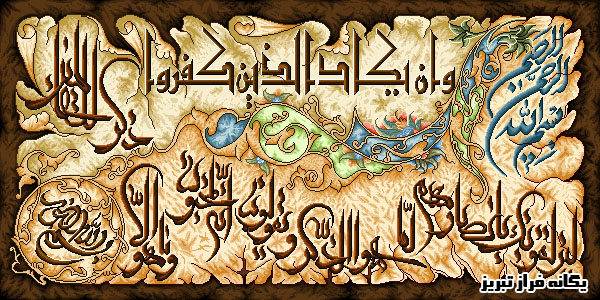 بسم الله الرحمن الرحیم
وان یکاد الذین کفروا
لیزلقونک بابصارهم
لما سمعوا الذکر و یقولون انه لمجنون
وما هو الا
ذکر للعالمین
یگانه فراز تبریز